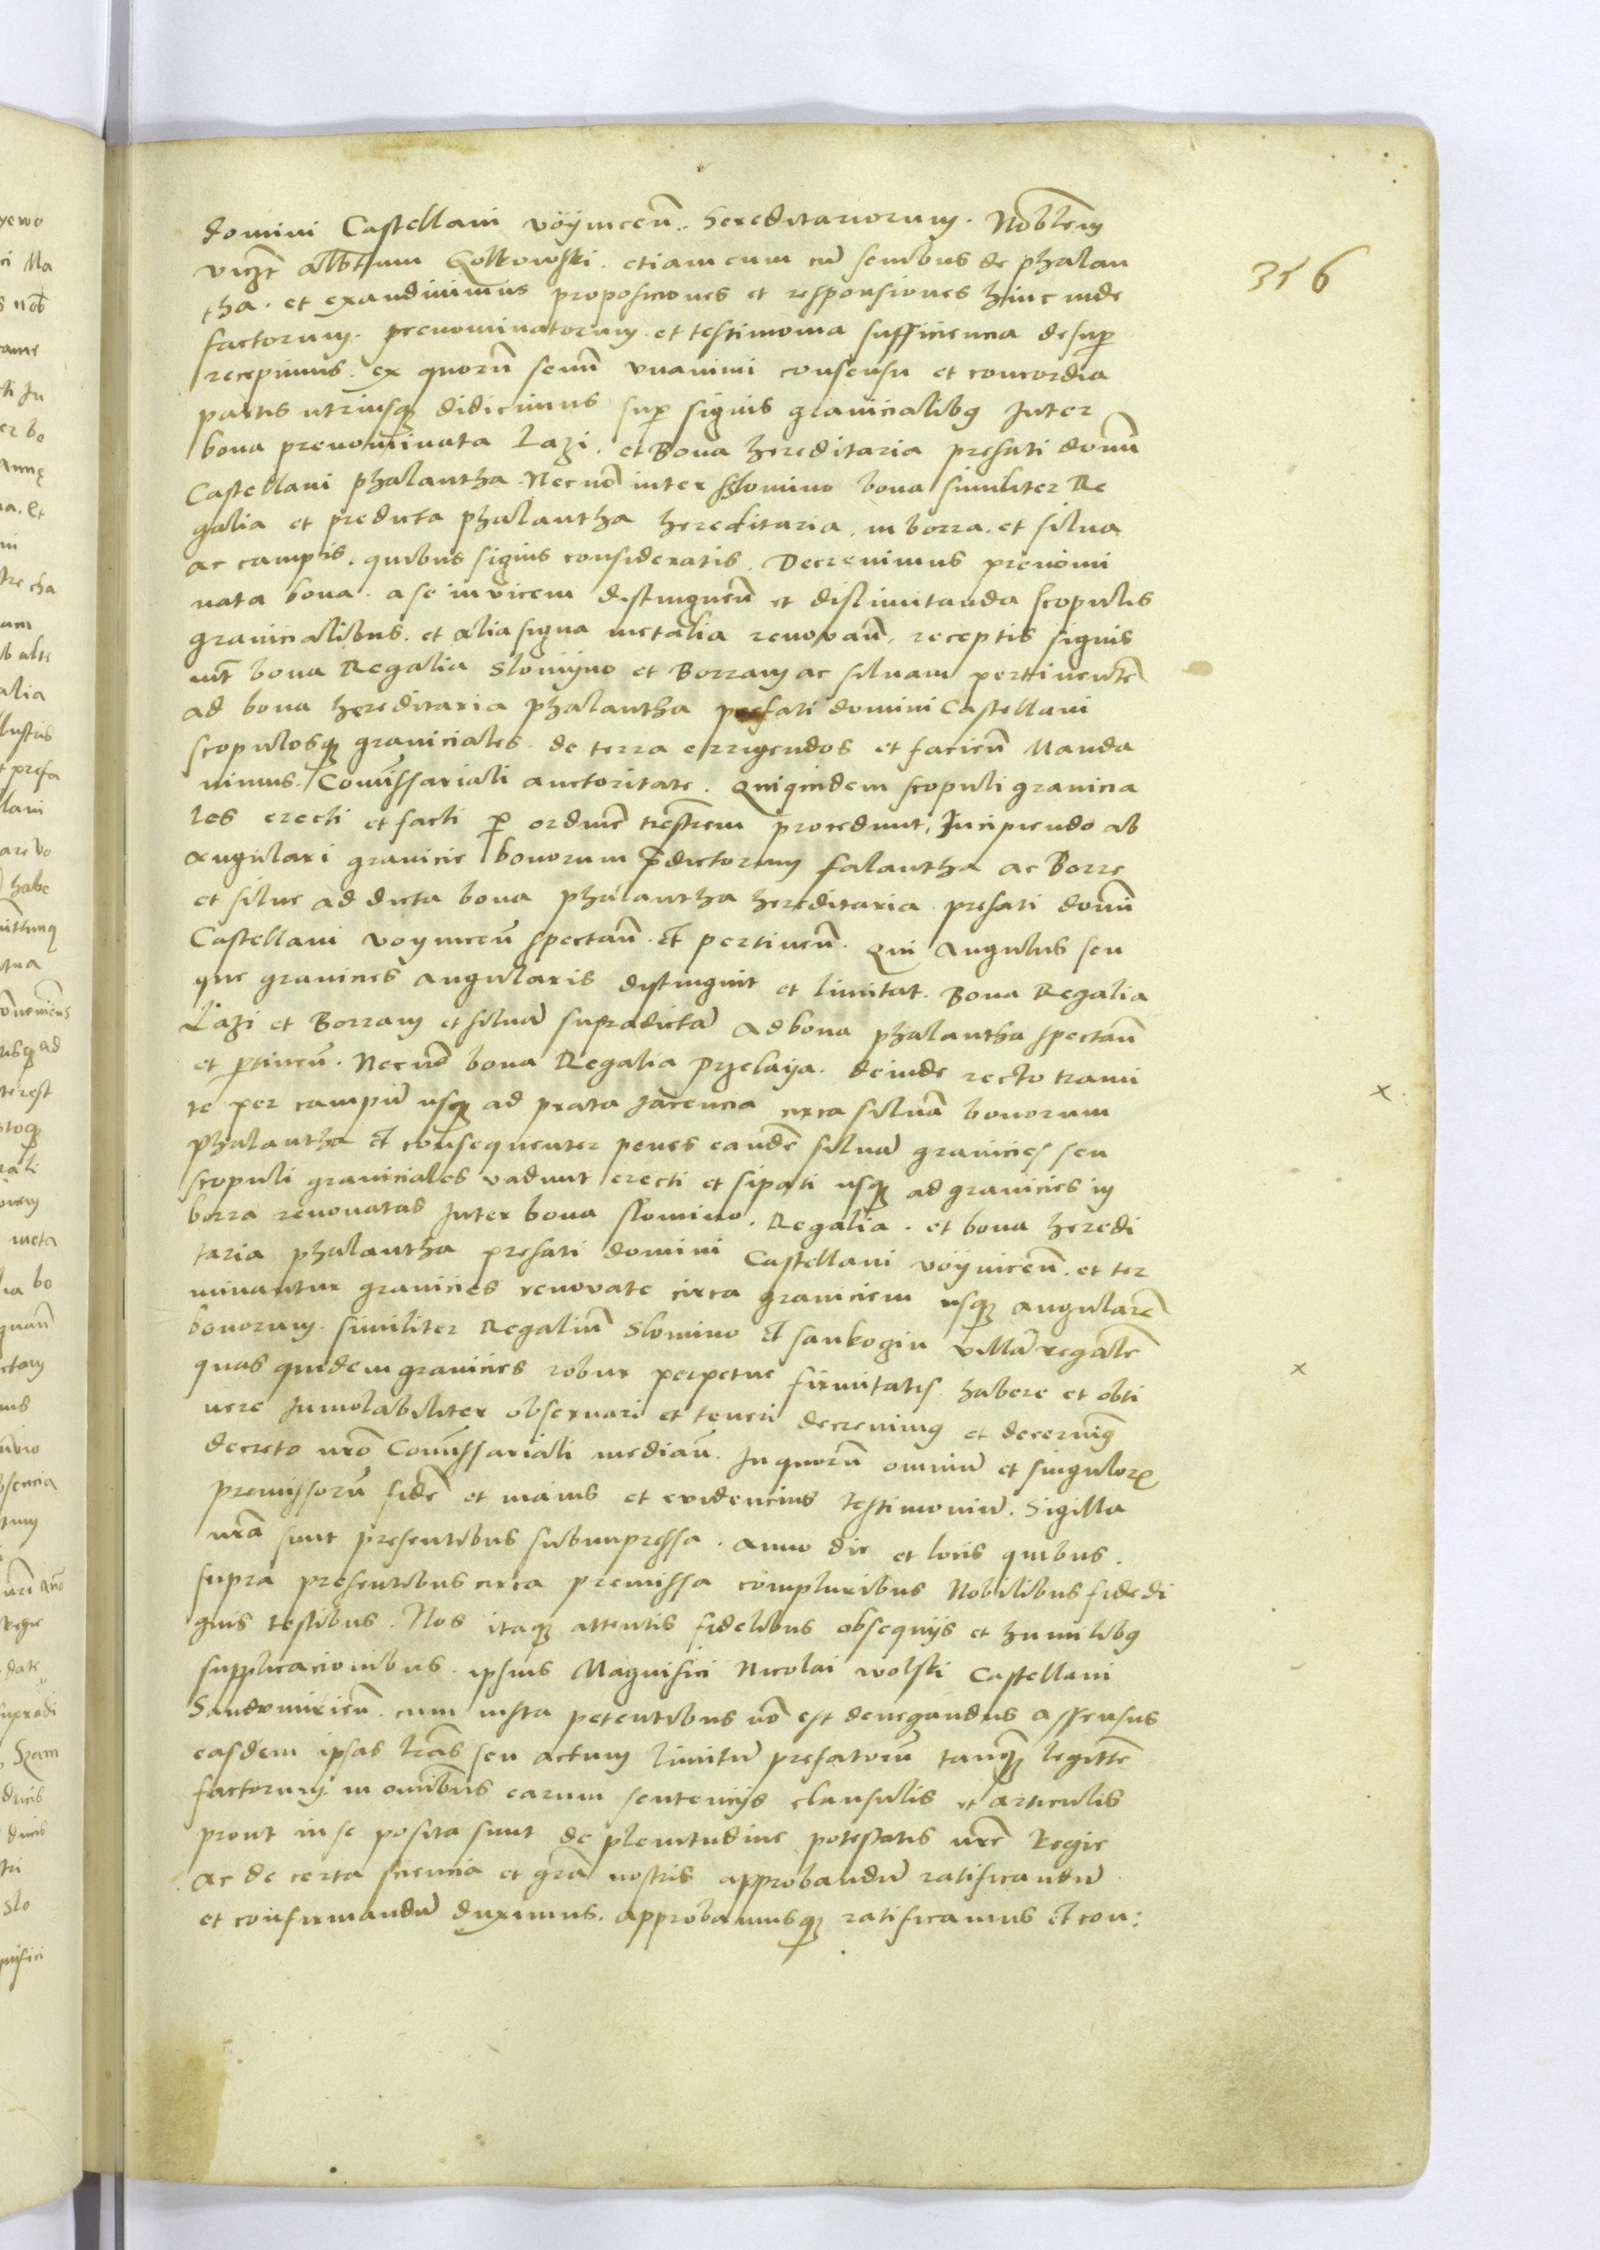 domini Castellani voÿniceñ. hereditariorum. Nobilem
vicz̃ Albt̃um Golkowski. etiam cum cũ senibus de phalan
tha. et exaudiuimus proposiciones et responsiones hinc inde
factorum. prenominatorum. et testimonia sufficiencia desup̱
recepimus. ex quorũ senũ vnanimi consensu et concordia
partis utriusq̢ didicimus sup̱ signis granicialibꝯ Inter
bona prenominata Lazi. et Bona hereditaria prefati domĩ
Castellani phalantha. Necnõ inter Slomino bona similiter Re
galia et predicta phalantha hereditaria. in borra. et silua
ac campis. quibus signis consideratis. Decreuimus prenomi
nata bona. a se inuicem distingueñ et dislimitanda scopulis
granicialibus. et alia signa metalia renouañ. receptis signis
int̃ bona Regalia Slomÿno et Borram ac siluam pertinenteм̃
ad bona hereditaria phalantha prefati domini Castellani
scopulosq̢ graniciales. de terra errigendos et facieñ Manda
uimus. Com̃issariali auctoritate. Quiquidem scopuli granicia
les erecti et facti ꝑ ordinẽ tr̃estrem procedunt, Incipiendo ab
angulari granicie bonorum p̃dictorum falantha ac Borre
et silue ad dicta bona phalantha hereditaria prefati domĩ
Castellani voyniceñ spectañ. et pertineñ. Qui Angulus seu
que granicies angularis distinguit et limitat. Bona Regalia
Lazi et Borram et siluã supradictã ad bona phalantha spectañ
et ꝑtineñ. Necnõ bona Regalia Przelaÿa. deinde recto trami
te per campũ usq̢ ad prata Jacencia circa siluã bonorum
phalantha et consequenter penes eandẽ siluã granicies seu
scopuli graniciales vadunt erecti et sipati usq̢ ad granicies in
borra renouatas Inter bona slomino. Regalia. et bona heredi
taria phalantha prefati domini Castellani voÿniceñ. et ter
minantur granicies renouate circa graniciem usq̢ angularẽ
bonorum. similiter Regaliũ Slomino et sankogin villã regalẽ
quas quidem granicies robur perpetue firmitatis. habere et obti
nere Inuiolabiliter obseruari et teneri decreuimꝯ et decernimꝯ
decreto nr̃o Com̃issariali mediañ. In quorũ omniũ et singulorꝝ
premissorũ fidẽ et maius et euidencius testimoniũ. Sigilla
nr̃a sunt presentibus subimpressa. Anno die et locis quibus.
supra presentibus circa premissa compluribus Nobilibus fide di
gnis testibus. Nos itaq̢ attentis fidelibus obsequÿs et humilibꝯ
supplicacionibus. ipsius Magnifici Nicolai wolski Castellani
Sandomirieñ. cum iusta petentibus nõ est denegandus assensus
easdem ipsas lr̃as seu actum limitũ prefatorũ tanq̢ legittĩe
factorum. in omĩbus earum sentencÿs clausulis et articulis
prout in se posita sunt de plenitudine potestatis nr̃e Regie
ac de certa sciencia et gr̃a nostris approbandũ ratificandũ
et confirmandũ duximus. approbamusq̢ ratificamus et con:
356
x
x